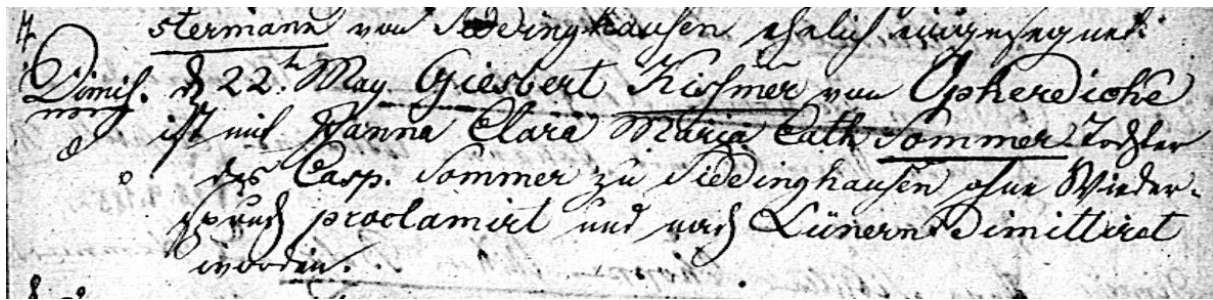 stermann von Siddinghausen ehelich eingesegnet.
Dimis. d 22.ten May Giesbert Kissmer von Opherdicke
ist mit Hanna Clara Maria Cath Sommer Tochter
des Casp. Sommer zu Siddinghausen ohne Wieder-
spruch proclamirt und nach Lünern Dimittiret
worden.